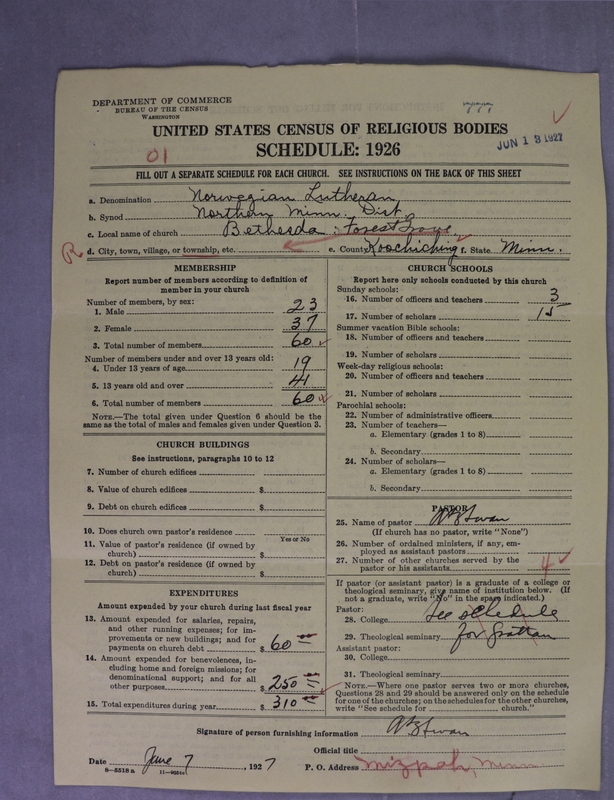 DEPARTMENT OF COMMERCE
BUREAU OF THE CENSUS
WASHINGTON
UNITED STATES CENSUS OF RELIGIOUS BODIES
SCHEDULE: 1926
JUN 13 1927
01
FILL OUT A SEPARATE SCHEDULE FOR EACH CHURCH. SEE INSTRUCTIONS ON THE BACK OF THIS SHEET
a. Denomination Norwegian Lutheran
b. Synod Northern Minn. Dist.
c. Local name of church Bethesda : Forest Grove
R d. City, town, village, or township, etc. e. County Koochiching f. State Minn.
MEMBERSHIP
Report number of members according to definition of
member in your church
Number of members, by sex:
1. Male 23
2. Female 37
3. Total number of members 60
Number of members under and over 13 years old:
4. Under 13 years of age 19
5. 13 years old and over 41
6. Total number of members 60
NOTE.—The total given under Question 6 should be the
same as the total of males and females given under Question 3.
CHURCH BUILDINGS
See instructions, paragraphs 10 to 12
7. Number of church edifices
8. Value of church edifices $
9. Debt on church edifices $
10. Does church own pastor's residence
Yes or No
11. Value of pastor's residence (if owned by
church) $
12. Debt on pastor's residence (if owned by
church) $
EXPENDITURES
Amount expended by your church during last fiscal year
13. Amount expended for salaries, repairs,
and other running expenses; for im-
provements or new buildings; and for
payments on church debt $ 60
14. Amount expended for benevolences, in-
cluding home and foreign missions; for
denominational support; and for all
other purposes $ 250
15. Total expenditures during year $ 310
CHURCH SCHOOLS
Report here only schools conducted by this church
Sunday schools:
16. Number of officers and teachers 3
17. Number of scholars 15
Summer vacation Bible schools:
18. Number of officers and teachers
19. Number of scholars
Week-day religious schools:
20. Number of officers and teachers
21. Number of scholars
Parochial schools:
22. Number of administrative officers
23. Number of teachers—
a. Elementary (grades 1 to 8)
b. Secondary
24. Number of scholars—
a. Elementary (grades 1 to 8)
b. Secondary
PASTOR
25. Name of pastor
(If church has no pastor, write "None")
26. Number of ordained ministers, if any, em-
ployed as assistant pastors
27. Number of other churches served by the
pastor or his assistants 4
If pastor (or assistant pastor) is a graduate of a college or
theological seminary, give name of institution below. (If
not a graduate, write "No" in the space indicated.)
Pastor:
28. College See schedule
29. Theological seminary for Grattan
Assistant pastor:
30. College
31. Theological seminary
NOTE.—Where one pastor serves two or more churches,
Questions 28 and 29 should be answered only on the schedule
for one of the churches; on the schedules for the other churches,
write "See schedule for church."
Signature of person furnishing information
Official title
Date June 7, 1927 P. O. Address Mizpah, Minn
8-5518 a